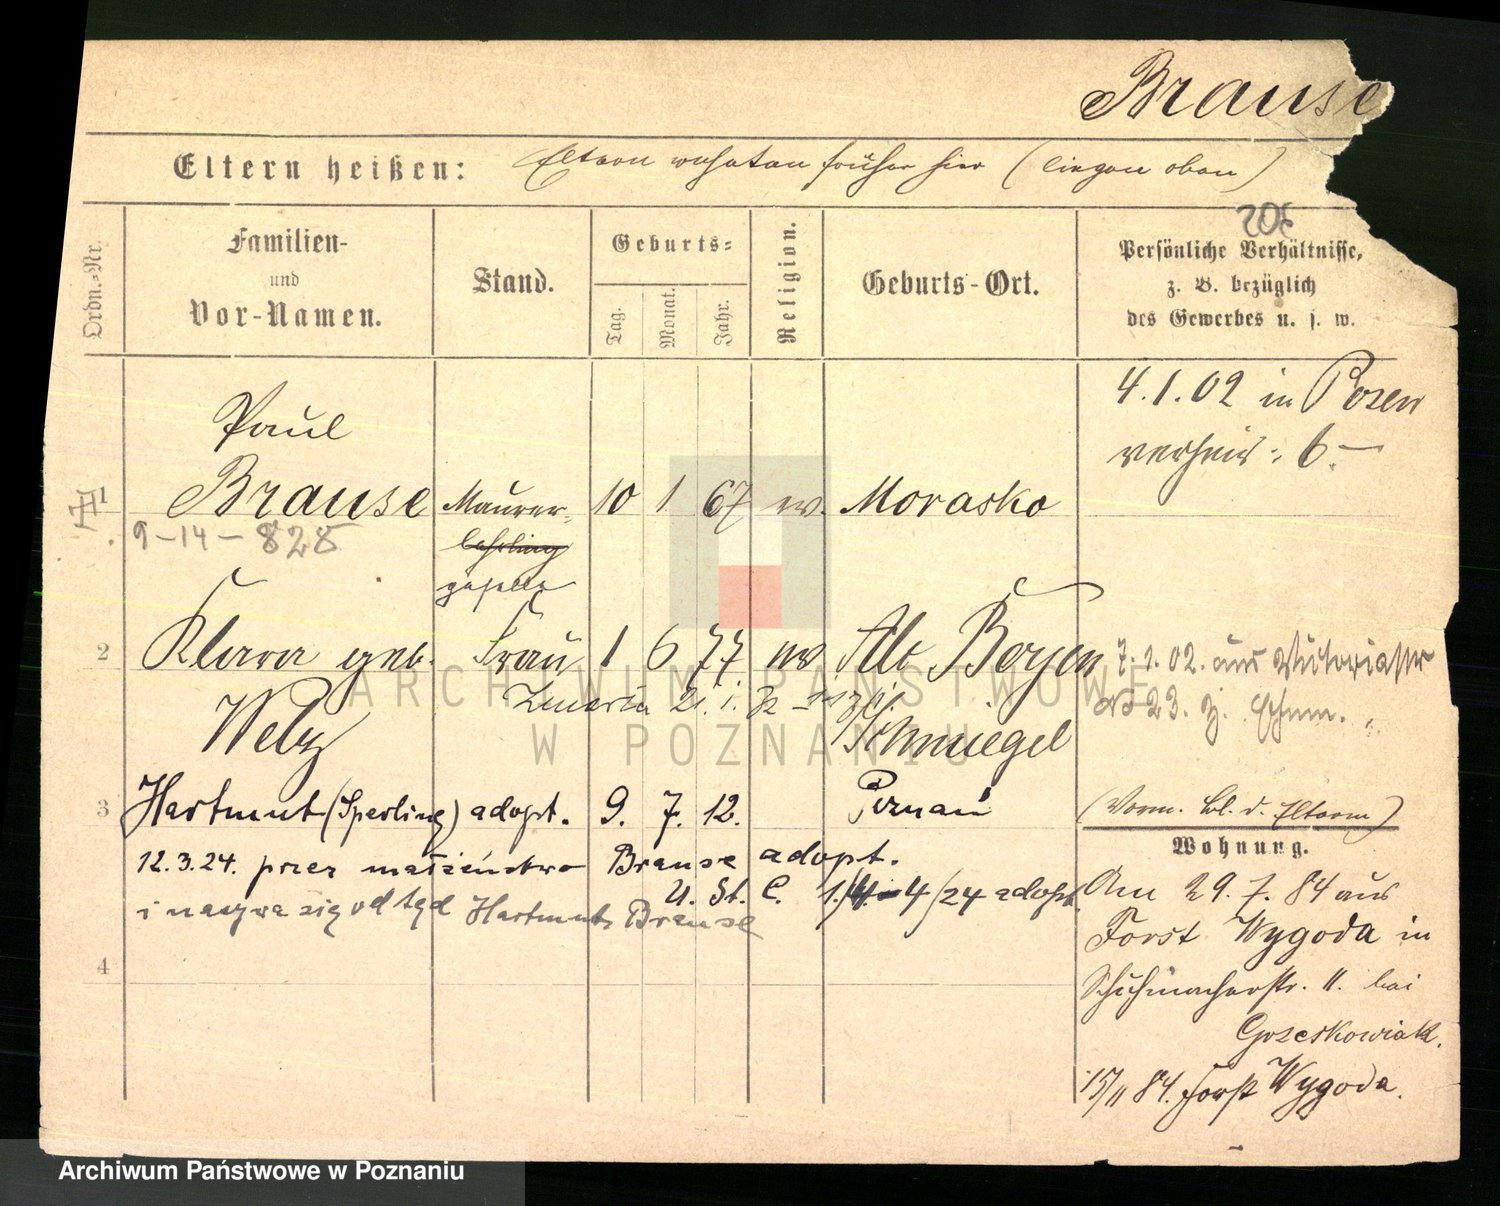 Brause
Eltern heißen: Eltern wohnten früher hier (liegen oben)
205
Ordn.-Nr.
Familien-
und
Vor-Namen.
Stand.
Geburts-
Tag.
Monat.
Jahr.
Religion.
Geburts-Ort.
Persönliche Verhältnisse,
z. B. bezüglich
des Gewerbes u. s. w.
4.1.02 in Posen
verheir: 6.—
Paul
1 Brause Maurer- 10 1 67 ev. Morasko
lehrling
9-14-828
geselle
2 Klara geb. Frau 1 6 77 ev Alt Boyen
Welz
Zmarła 21.1.
Schmiegel
7.1.02. aus Viktoriastr
No 23. z.
3 Hartmut (Sperling) adopt. 9. 7. 12. Poznań
(Vorm. bl. d. Eltern)
12.3.24. przez małżeństwo Brause adopt.
U. St. C. 1./4/24 adopt.
i nazywa się odtąd Hartmut Brause
4
Wohnung.
Am 29.7.84 aus
Forst Wygoda in
Schuhmacherstr. 11. bei
Grzeskowiak.
15/11 84. Forst Wygoda.
ARCHIWUM PAŃSTWOWE
W POZNANIU
Archiwum Państwowe w Poznaniu